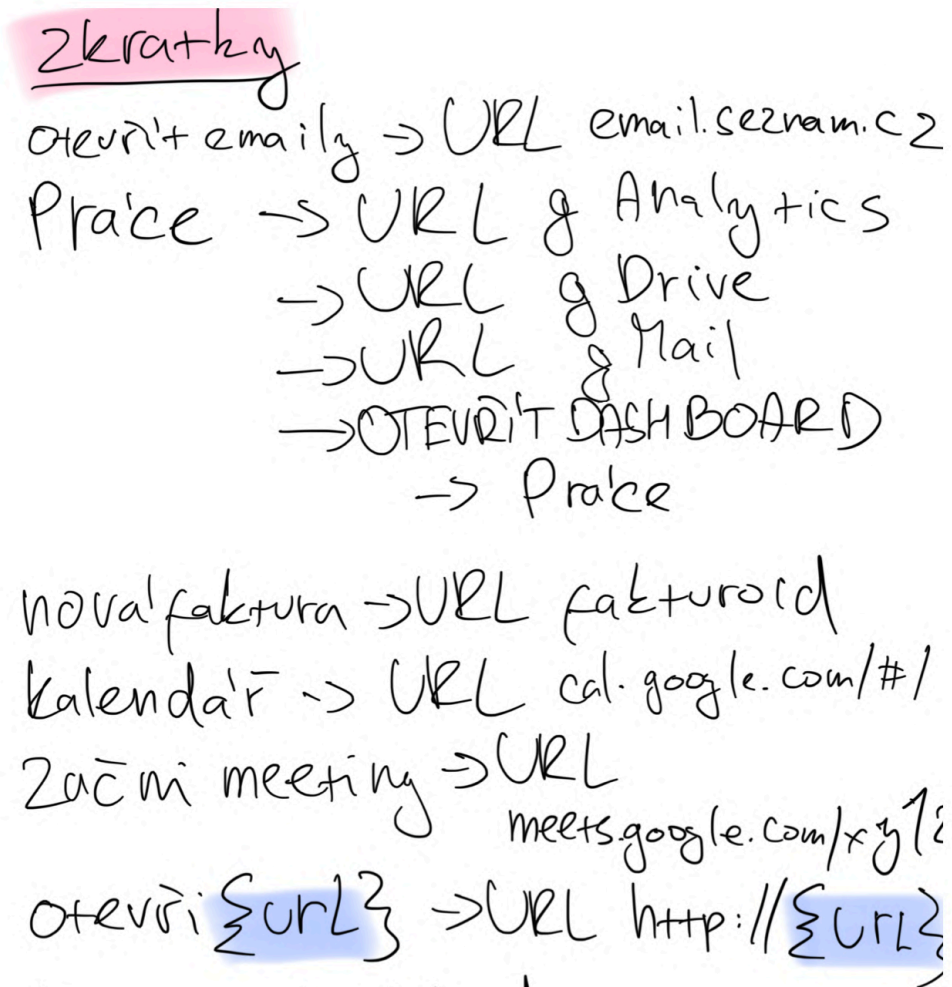 zkratky
otevřít emaily → URL email.seznam.cz
Práce → URL g Analytics
→ URL g Drive
→ URL g Mail
→ OTEVŘÍT DASHBOARD
→ Práce
nová faktura → URL fakturoid
kalendář → URL cal.google.com/#/
Začni meeting → URL
meets.google.com/xy12
otevři {url} → URL http://{url}